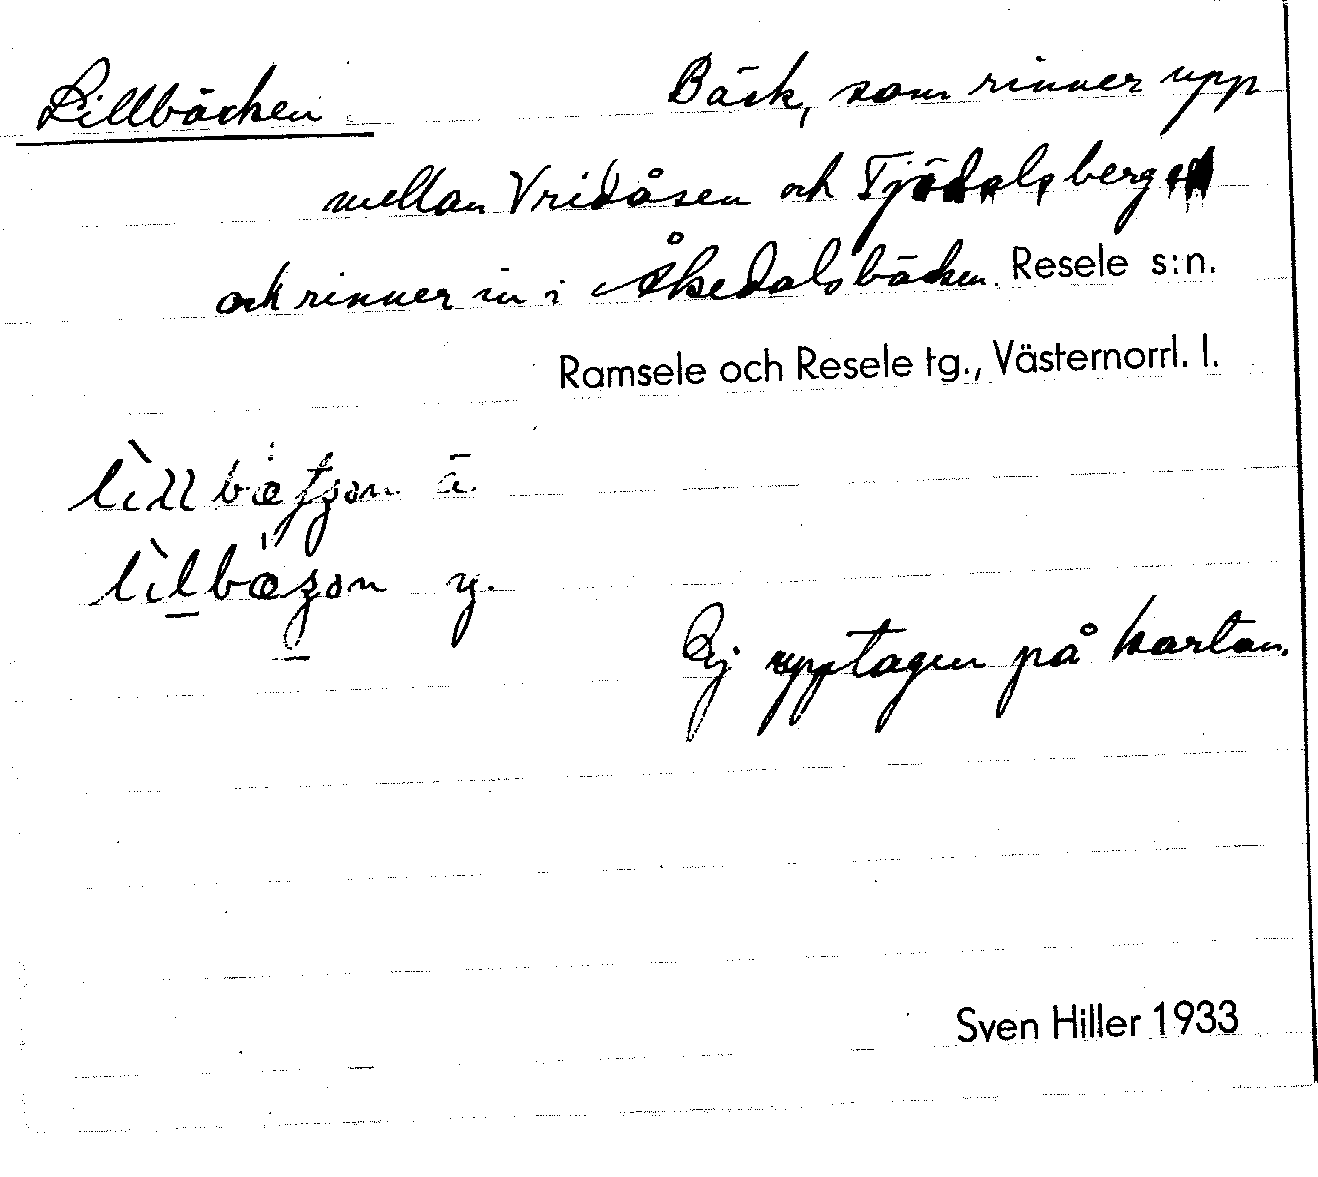 Lillbäcken Bäck, som rinner upp
mellan Vridåsen och Tjädals berget
och rinner in i Åkedalsbäcken. Resele s:n.
Ramsele och Resele tg., Västernorrl. l.
ä.
y.
Ej upptagen på kartan.
Sven Hiller 1933